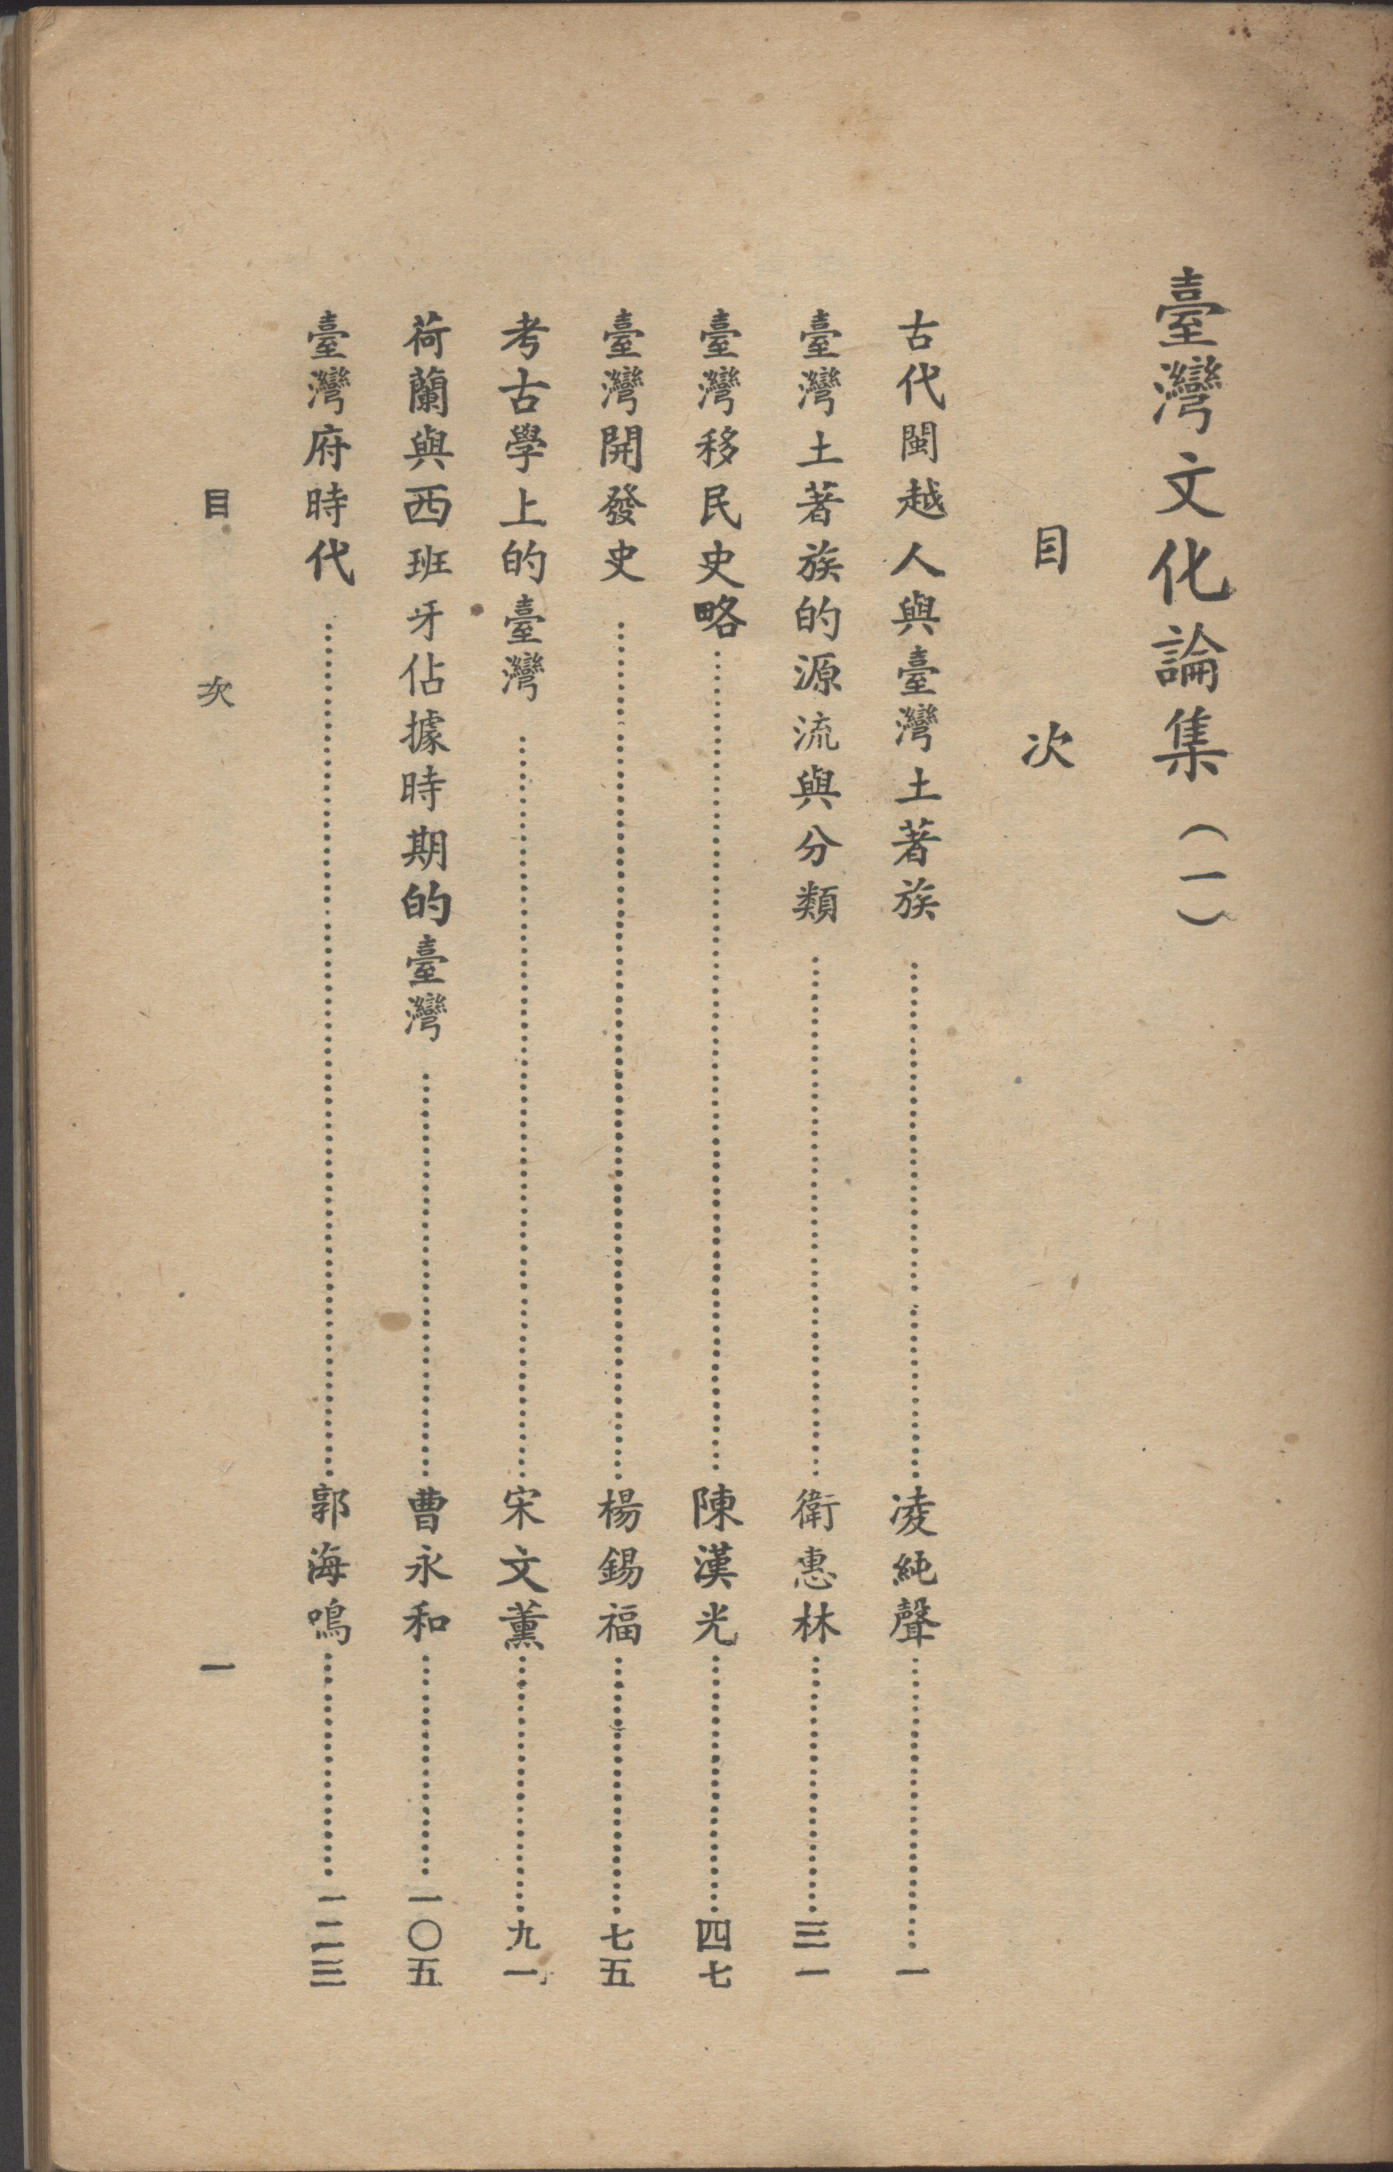 臺灣文化論集（一）
目次
古代閩越人與臺灣土著族……凌純聲……一
臺灣土著族的源流與分類……衛惠林……三一
臺灣移民史略……陳漢光……四七
臺灣開發史……楊錫福……七五
考古學上的臺灣……宋文薰……九一
荷蘭與西班牙佔據時期的臺灣……曹永和……一〇五
臺灣府時代……郭海鳴……一二三
目次 一